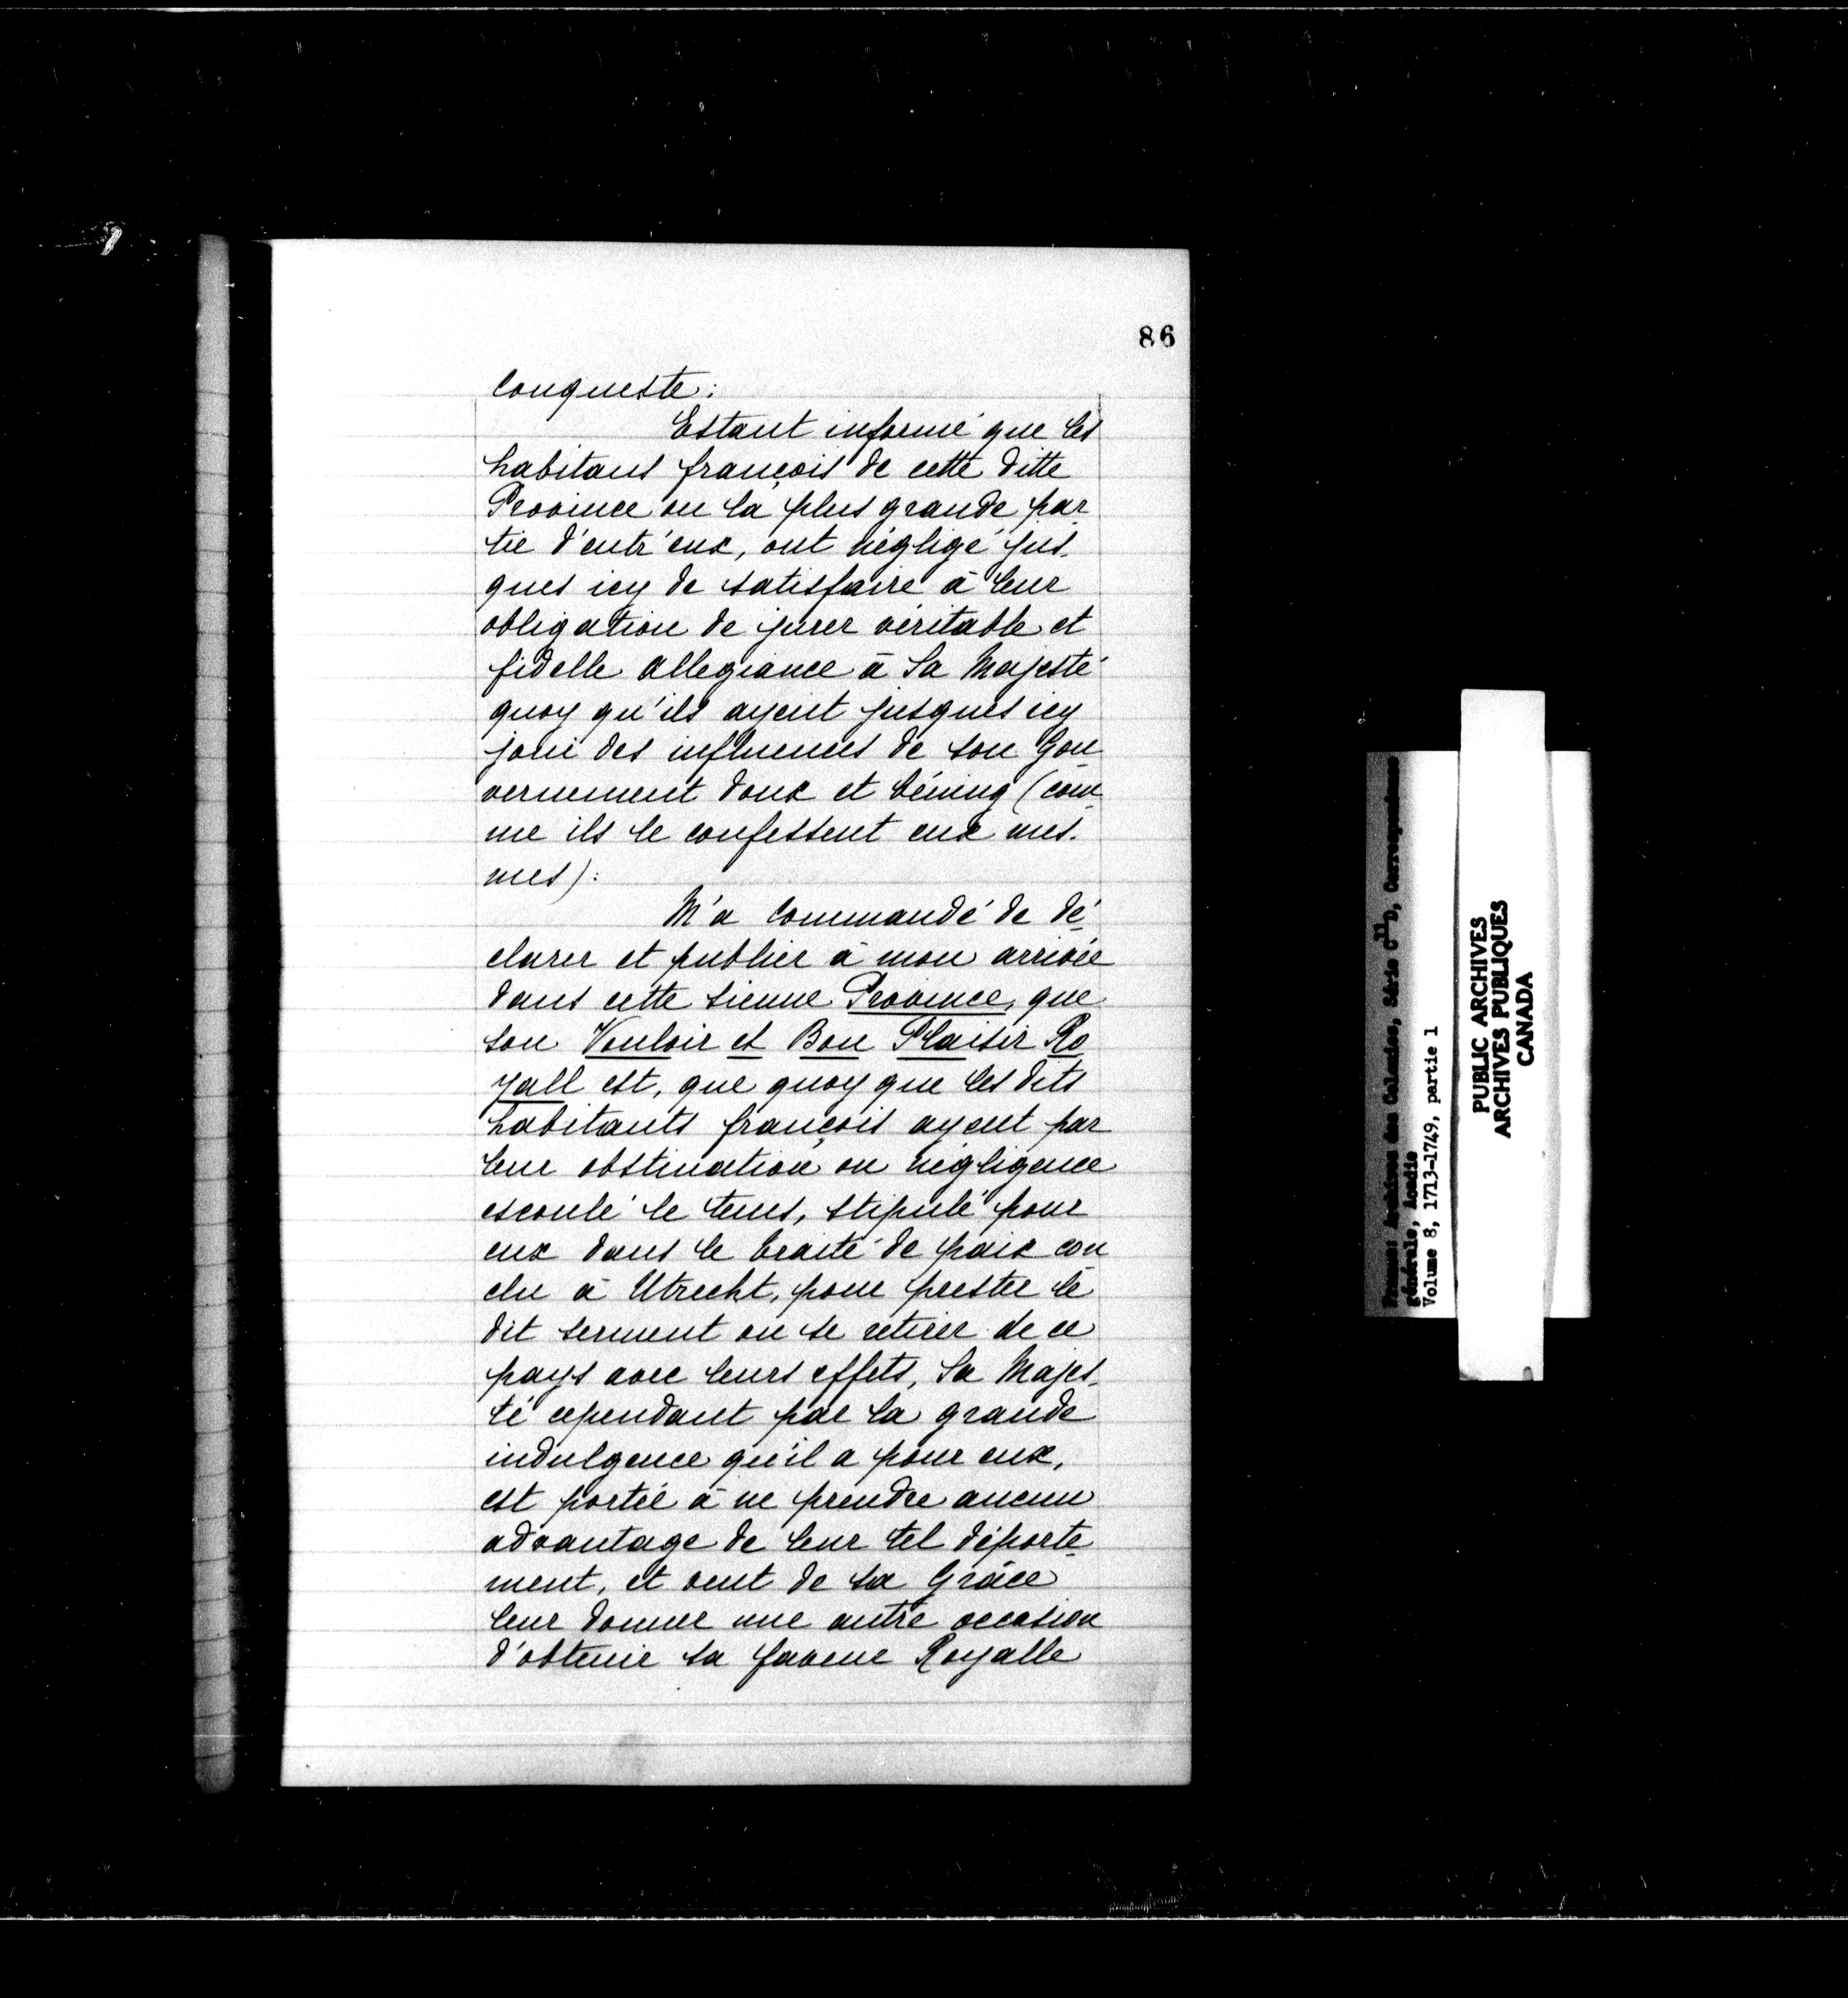 86
Conqueste:
Estant informé que les
habitans françois de cette ditte
Province ou la plus grande par
tie d'entr'eux, ont négligé jus-
ques icy de satisfaire à leur
obligation de jurer véritable et
fidelle allegiance à Sa Majesté
quoy qu'ils ayent jusques icy
joui des influences de son Gou
vernement doux et béning (com
me ils le confessent eux mes-
mes):
M'a commandé de dé
clarer et publier à mon arrivée
dans cette sienne Province, que
son Vouloir et Bon Plaisir Ro
yall est, que quoy que les dits
habitants françois ayent par
leur obstination ou négligence
escoulé le tems, stipulé pour
eux dans le traité de paix con
clu à Utrecht, pour prester le
dit serment ou se retirer de ce
pays avec leurs effets, Sa Majes-
té cependant par la grande
indulgence qu'il a pour eux,
est portée à ne prendre aucun
advantage de leur tel déporte
ment, et veut de sa Grâce
leur donner une autre occasion
d'obtenir sa faveur Royalle
France: Archives des Colonies, Série C11D, Correspondance
générale, Acadie
Volume 8, 1713-1749, partie 1
PUBLIC ARCHIVES
ARCHIVES PUBLIQUES
CANADA